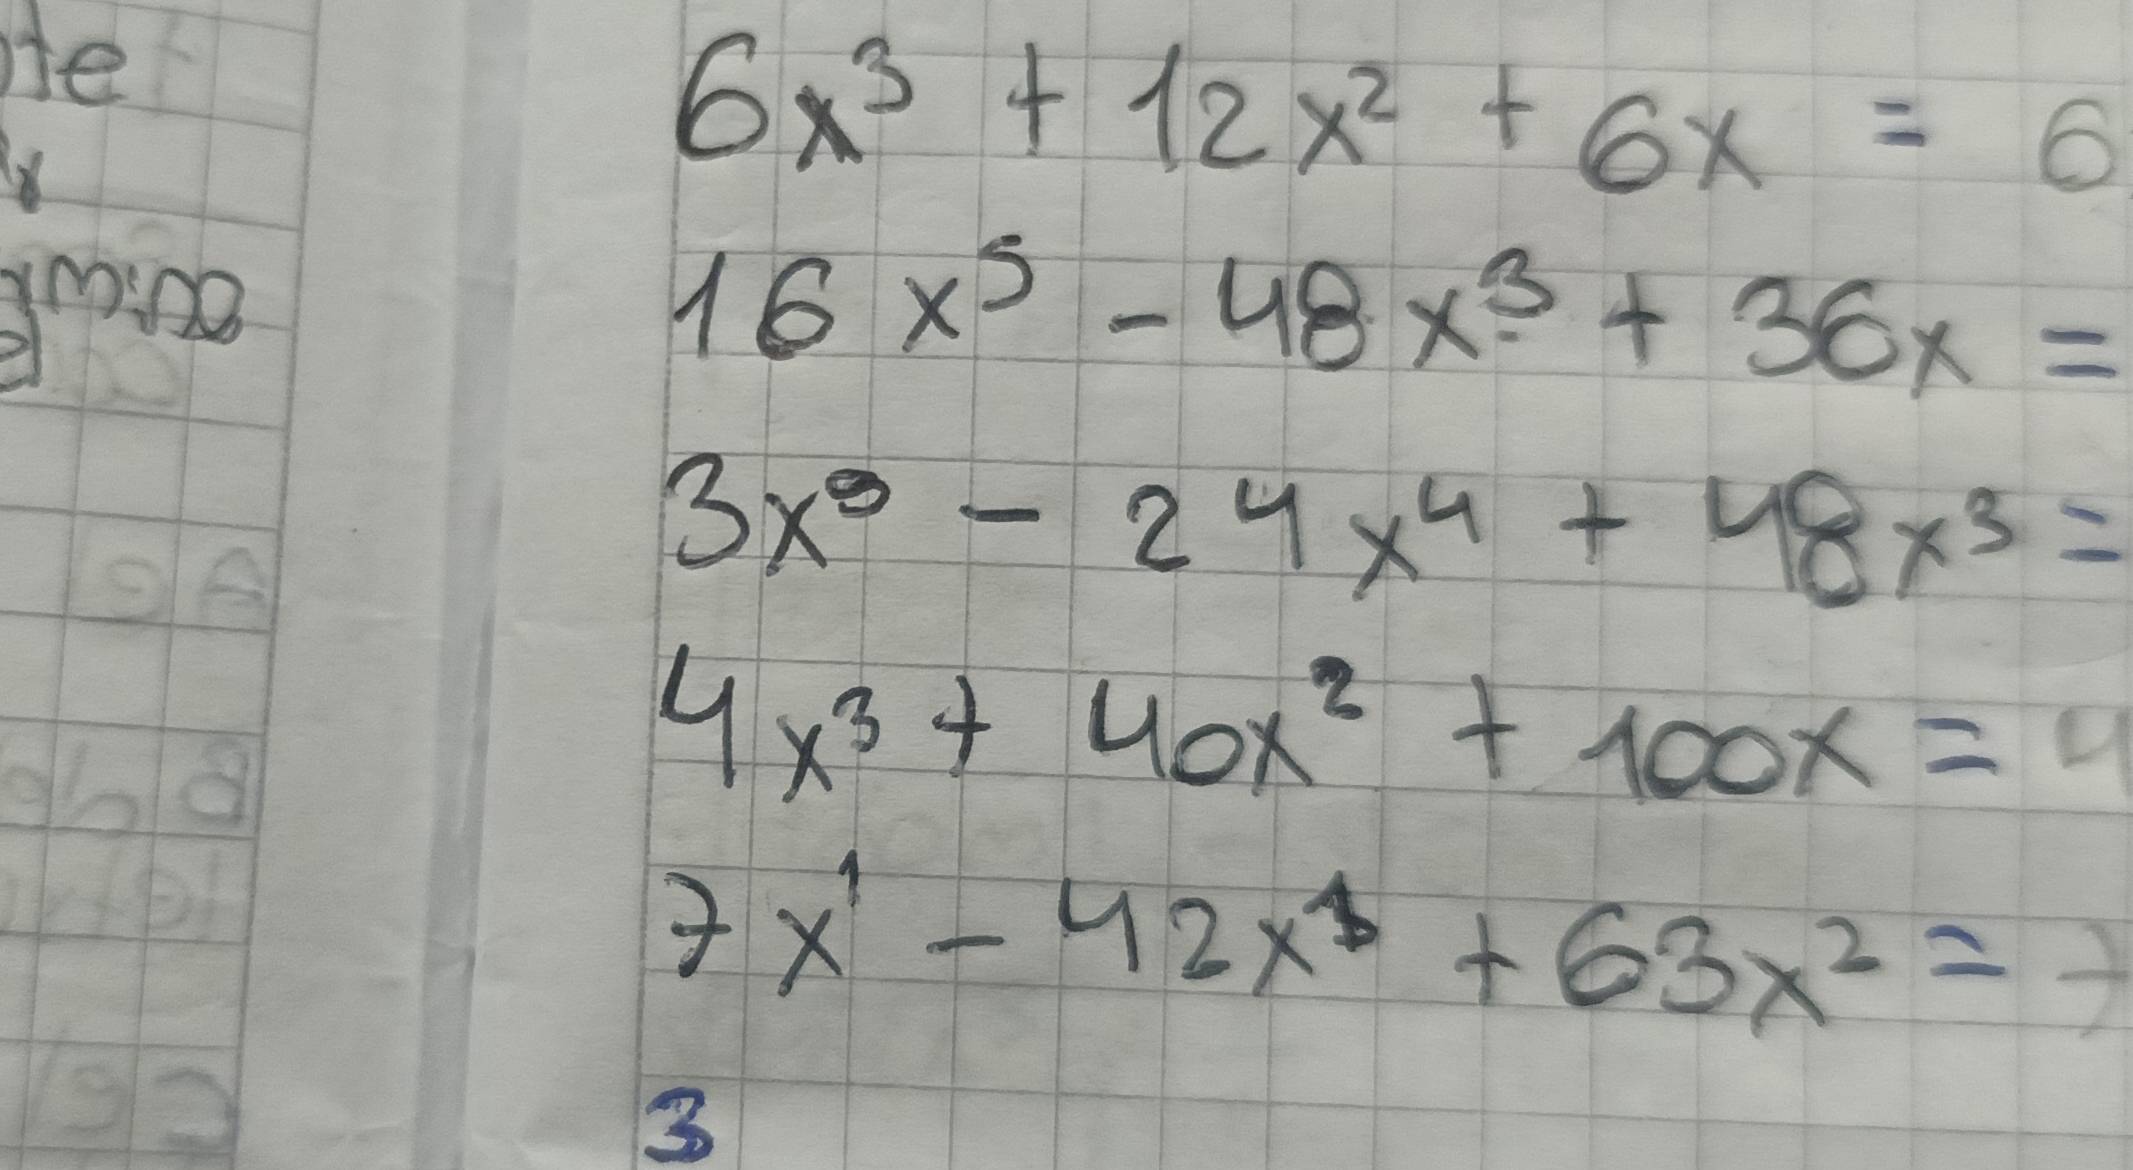 6x³ + 12x² + 6x = 6
16x⁵ - 48x³ + 36x =
3x⁵ - 24x⁴ + 48x³ =
4x³ + 40x² + 100x = 4
7x¹ - 42x³ + 63x² = 7
3